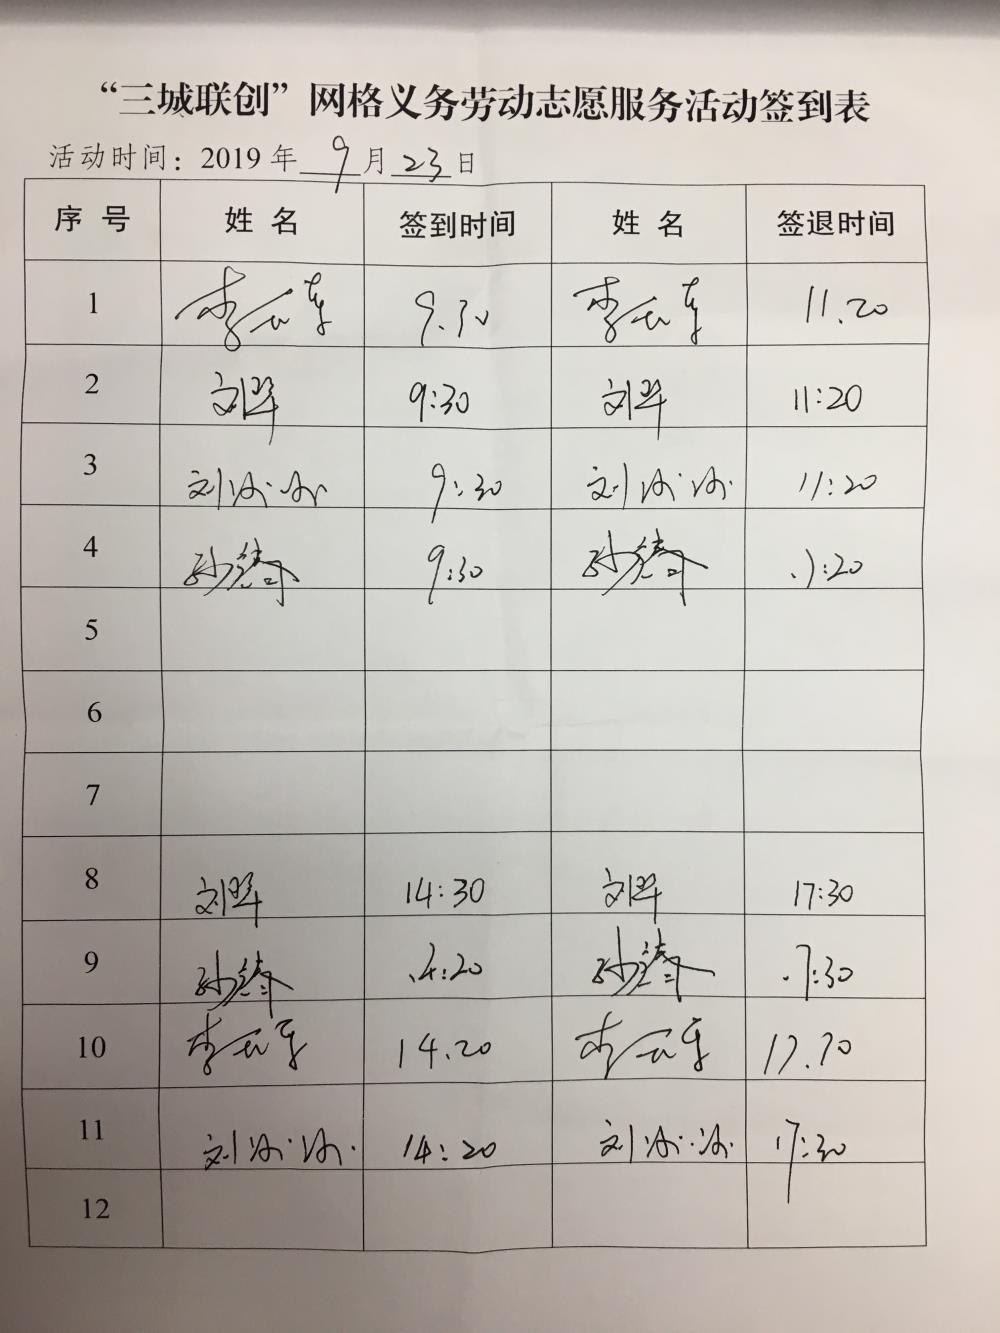 “三城联创”网格义务劳动志愿服务活动签到表
活动时间：2019 年 9 月 23 日
序 号 姓 名 签到时间 姓 名 签退时间
1 李 9.30 李 11.20
2 刘 9:30 刘 11:20
3 刘冰冰 9:30 刘冰冰 11:20
4 孙 9:30 孙 11:20
5
6
7
8 刘 14:30 刘 17:30
9 孙 14:20 孙 17:30
10 李 14.20 李 17.30
11 刘冰冰 14:20 刘冰冰 17:30
12